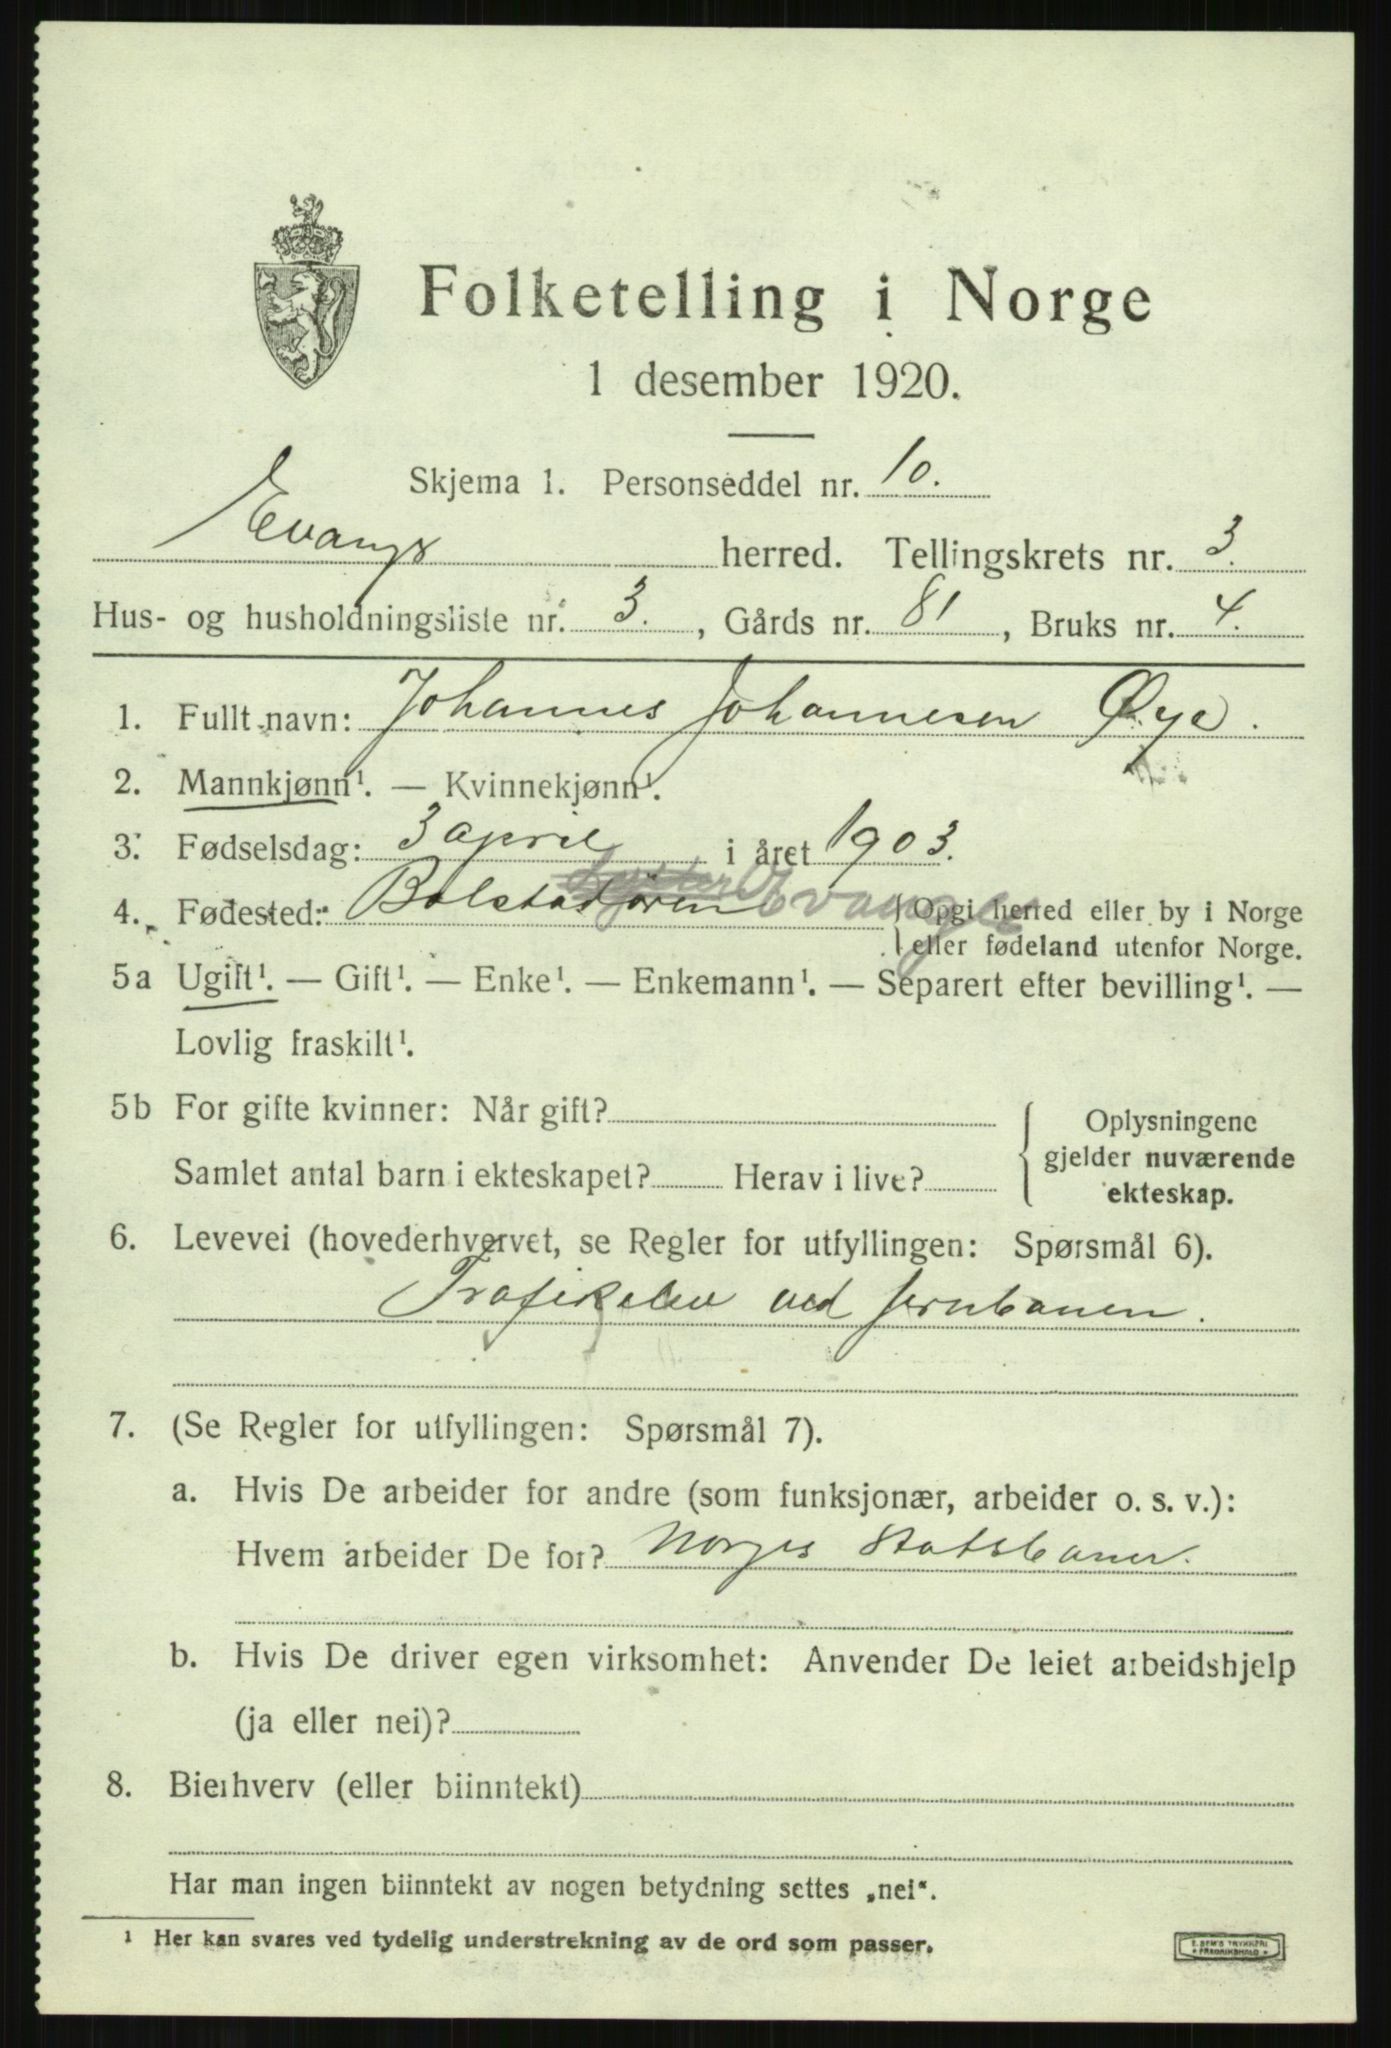 Folketelling i Norge
1 desember 1920.
Skjema 1. Personseddel nr. 10.
Evanger herred. Tellingskrets nr. 3.
Hus- og husholdningsliste nr. 3., Gårds nr. 81, Bruks nr. 4.
1. Fullt navn: Johannes Johannesen Øye.
2. Mannkjønn¹. — Kvinnekjønn¹.
3. Fødselsdag: 3 april i året 1903.
4. Fødested: Bolstadøren Evanger {Opgi herred eller by i Norge
eller fødeland utenfor Norge.
5a Ugift¹. — Gift¹. — Enke¹. — Enkemann¹. — Separert efter bevilling¹. —
Lovlig fraskilt¹.
5b For gifte kvinner: Når gift?
Samlet antal barn i ekteskapet? Herav i live?
{ Oplysningene
gjelder nuværende
ekteskap.
6. Levevei (hovederhvervet, se Regler for utfyllingen: Spørsmål 6).
Trafikelev ved jernbanen.
7. (Se Regler for utfyllingen: Spørsmål 7).
a. Hvis De arbeider for andre (som funksjonær, arbeider o. s. v.):
Hvem arbeider De for? Norges Statsbaner.
b. Hvis De driver egen virksomhet: Anvender De leiet arbeidshjelp
(ja eller nei)?
8. Bierhverv (eller biinntekt)
Har man ingen biinntekt av nogen betydning settes „nei“.
¹ Her kan svares ved tydelig understrekning av de ord som passer.
E. SEM'S TRYKKERI
FREDRIKSHALD